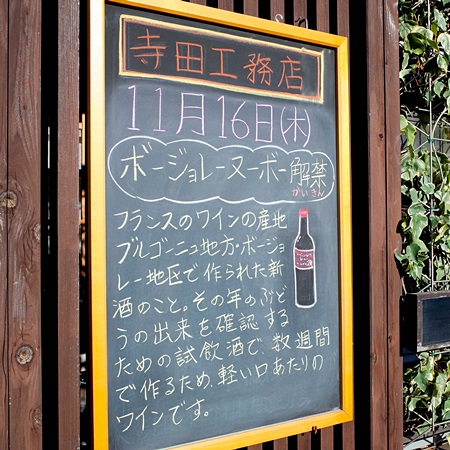 寺田工務店
11月16日(木)
ボージョレーヌーボー解禁
かいきん
フランスのワインの産地
ブルゴーニュ地方・ボージョ
レー地区で作られた新
酒のこと。その年のぶど
うの出来を確認する
ための試飲酒で、数週間
で作るため、軽い口あたりの
ワインです。